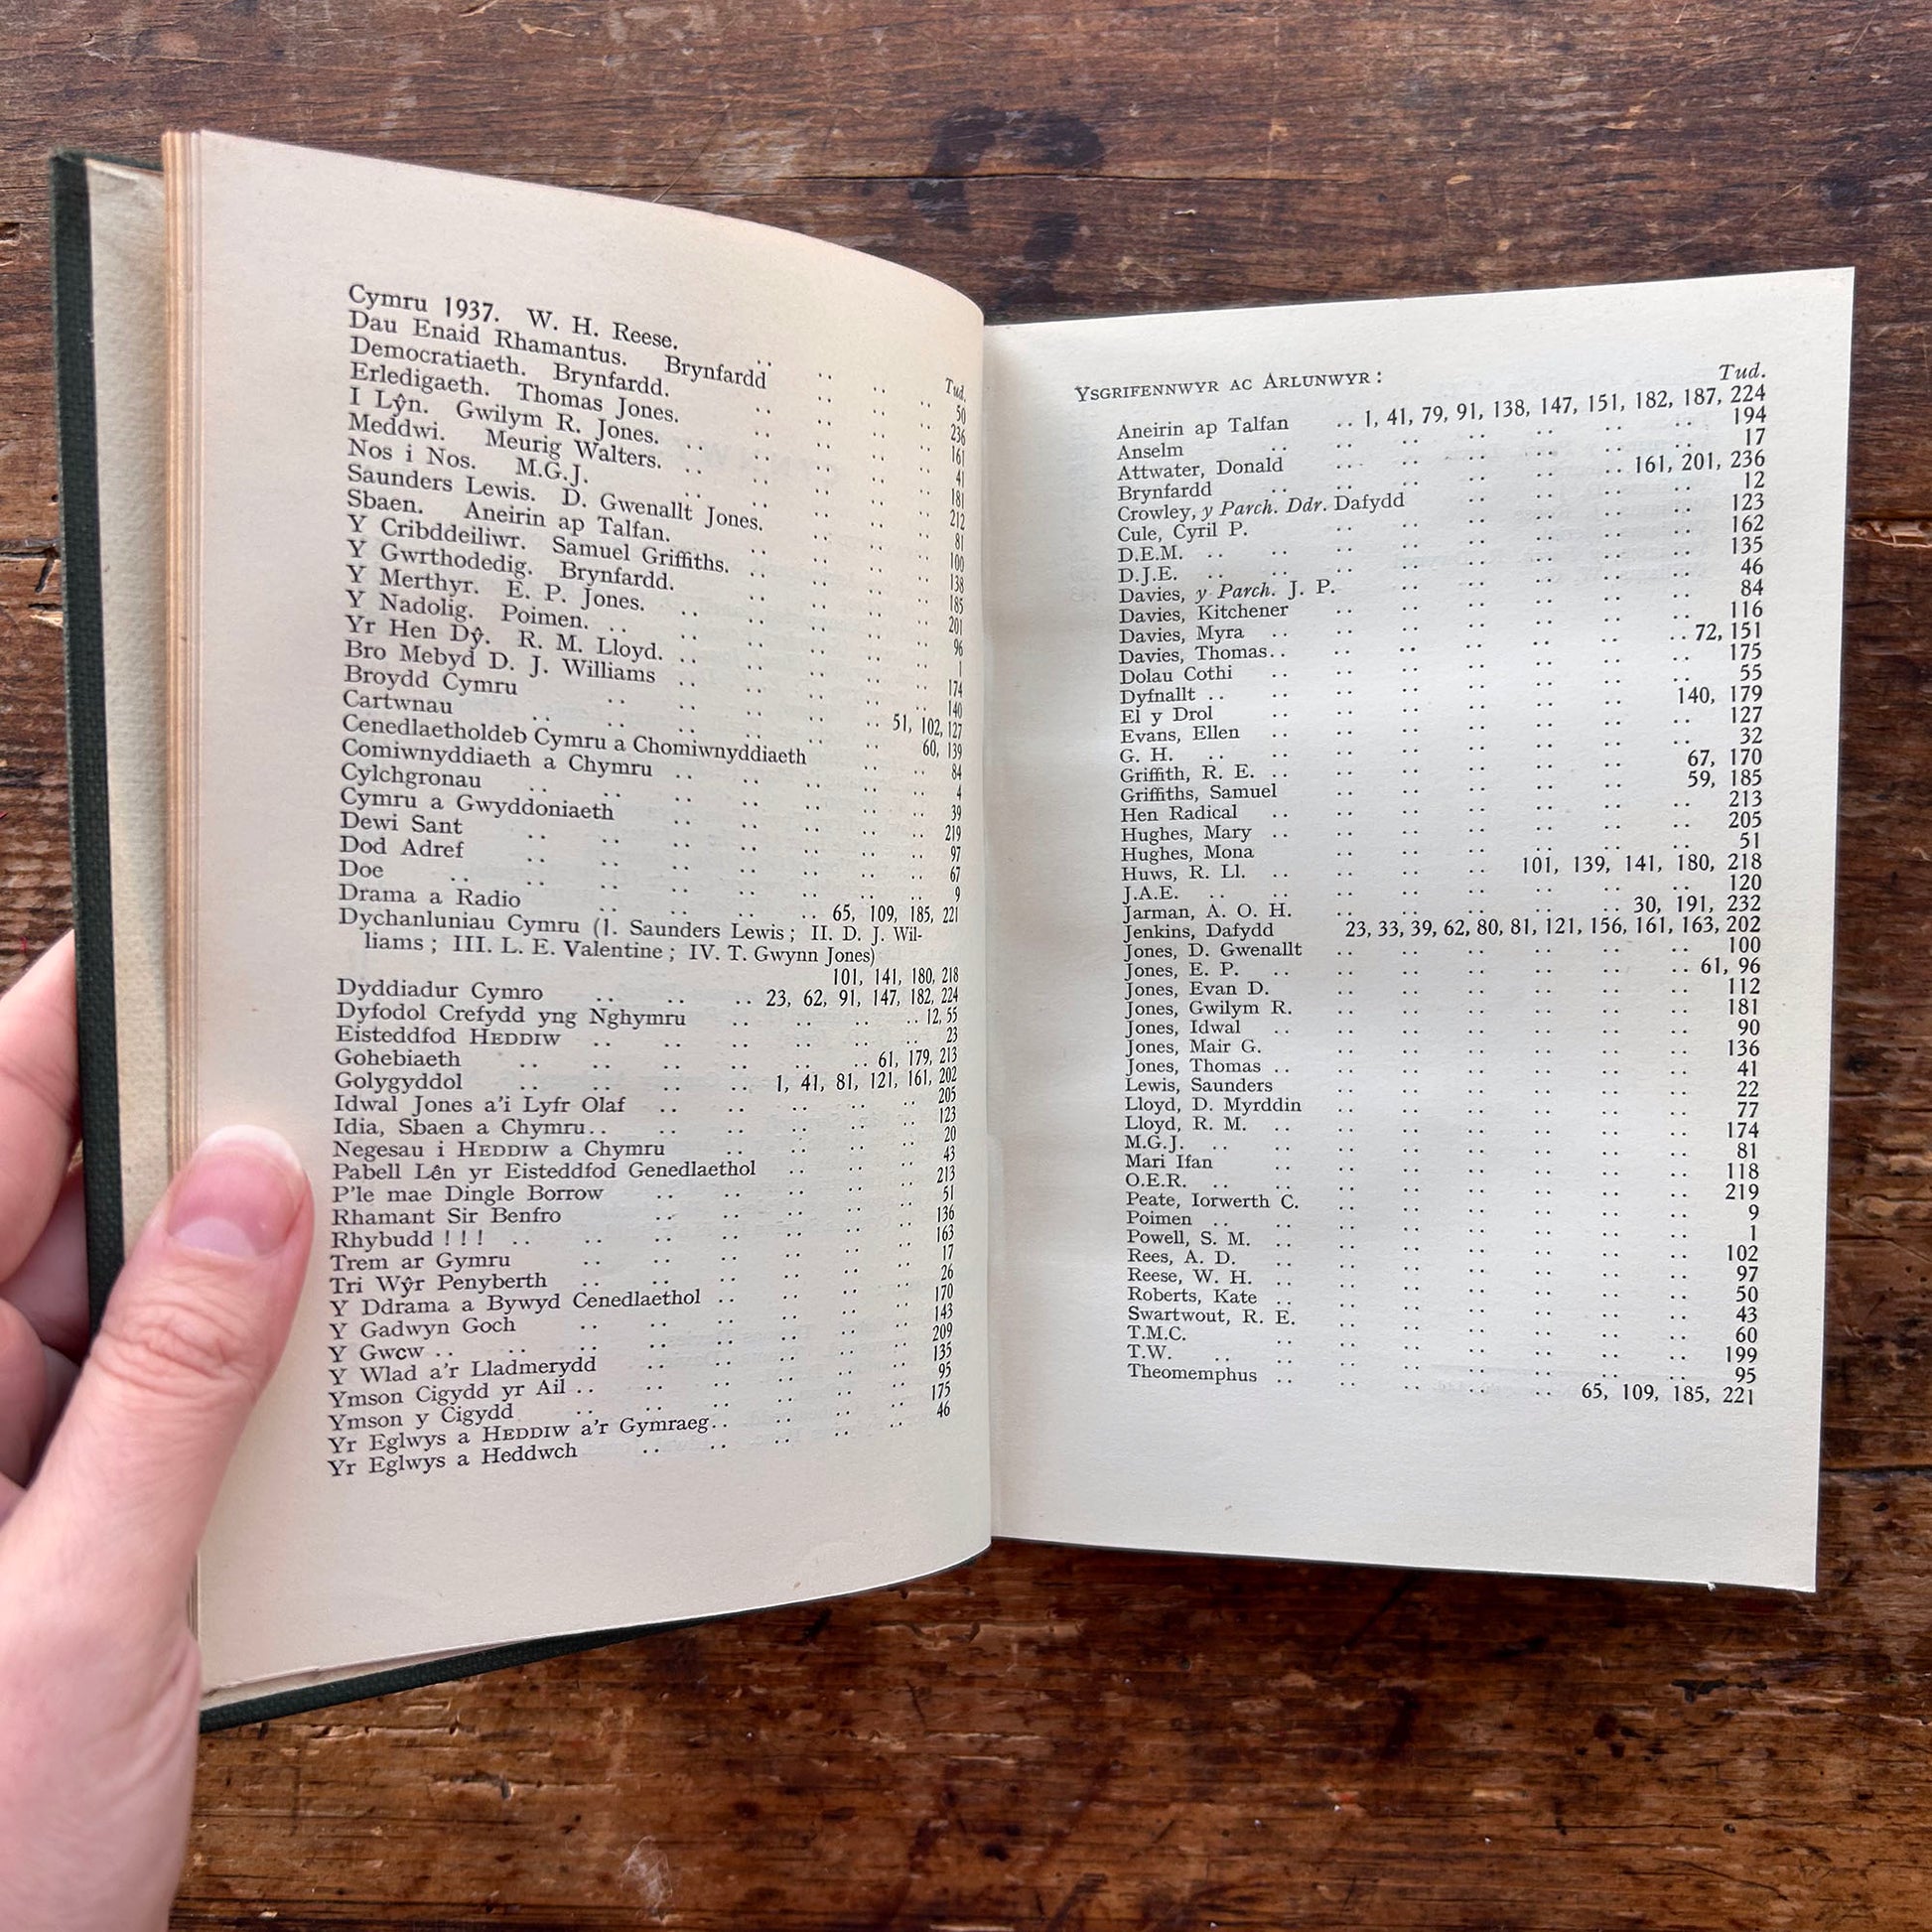 Tud.
Cymru 1937. W. H. Reese. .. .. .. .. 50
Dau Enaid Rhamantus. Brynfardd .. .. .. 236
Democratiaeth. Brynfardd. .. .. .. .. 161
Erledigaeth. Thomas Jones. .. .. .. .. 41
I Lŷn. Gwilym R. Jones. .. .. .. .. 181
Meddwi. Meurig Walters. .. .. .. .. 212
Nos i Nos. M.G.J. .. .. .. .. 81
Saunders Lewis. D. Gwenallt Jones. .. .. .. 100
Sbaen. Aneirin ap Talfan. .. .. .. .. 138
Y Cribddeiliwr. Samuel Griffiths. .. .. .. .. 185
Y Gwrthodedig. Brynfardd. .. .. .. .. 201
Y Merthyr. E. P. Jones. .. .. .. .. 96
Y Nadolig. Poimen. .. .. .. .. .. 1
Yr Hen Dŷ. R. M. Lloyd. .. .. .. .. 174
Bro Mebyd D. J. Williams .. .. .. .. 140
Broydd Cymru .. .. .. .. 51, 102, 127
Cartwnau .. .. .. .. .. 60, 139
Cenedlaetholdeb Cymru a Chomiwnyddiaeth .. .. 84
Comiwnyddiaeth a Chymru .. .. .. .. 4
Cylchgronau .. .. .. .. .. .. 39
Cymru a Gwyddoniaeth .. .. .. .. 219
Dewi Sant .. .. .. .. .. .. 97
Dod Adref .. .. .. .. .. .. 67
Doe .. .. .. .. .. .. 9
Drama a Radio .. .. .. .. 65, 109, 185, 221
Dychanluniau Cymru (I. Saunders Lewis ; II. D. J. Wil-
liams ; III. L. E. Valentine ; IV. T. Gwynn Jones)
101, 141, 180, 218
Dyddiadur Cymro .. .. .. 23, 62, 91, 147, 182, 224
Dyfodol Crefydd yng Nghymru .. .. .. .. 12, 55
Eisteddfod HEDDIW .. .. .. .. .. 23
Gohebiaeth .. .. .. .. .. 61, 179, 213
Golygyddol .. .. .. .. 1, 41, 81, 121, 161, 202
Idwal Jones a'i Lyfr Olaf .. .. .. .. 205
Idia, Sbaen a Chymru .. .. .. .. .. 123
Negesau i HEDDIW a Chymru .. .. .. .. 20
Pabell Lên yr Eisteddfod Genedlaethol .. .. .. 43
P'le mae Dingle Borrow .. .. .. .. 213
Rhamant Sir Benfro .. .. .. .. .. 51
Rhybudd ! ! ! .. .. .. .. .. .. 136
Trem ar Gymru .. .. .. .. .. 163
Tri Wŷr Penyberth .. .. .. .. .. 17
Y Ddrama a Bywyd Cenedlaethol .. .. .. .. 26
Y Gadwyn Goch .. .. .. .. .. 170
Y Gwcw .. .. .. .. .. .. 143
Y Wlad a'r Lladmerydd .. .. .. .. 209
Ymson Cigydd yr Ail .. .. .. .. .. 135
Ymson y Cigydd .. .. .. .. .. 95
Yr Eglwys a HEDDIW a'r Gymraeg .. .. .. .. 175
Yr Eglwys a Heddwch .. .. .. .. 46
YSGRIFENNWYR AC ARLUNWYR : Tud.
Aneirin ap Talfan .. 1, 41, 79, 91, 138, 147, 151, 182, 187, 224
Anselm .. .. .. .. .. .. 194
Attwater, Donald .. .. .. .. .. .. 17
Brynfardd .. .. .. .. .. 161, 201, 236
Crowley, y Parch. Ddr. Dafydd .. .. .. .. 12
Cule, Cyril P. .. .. .. .. .. .. 123
D.E.M. .. .. .. .. .. .. .. 162
D.J.E. .. .. .. .. .. .. .. 135
Davies, y Parch. J. P. .. .. .. .. .. 46
Davies, Kitchener .. .. .. .. .. .. 84
Davies, Myra .. .. .. .. .. .. .. 116
Davies, Thomas .. .. .. .. .. .. 72, 151
Dolau Cothi .. .. .. .. .. .. .. 175
Dyfnallt .. .. .. .. .. .. .. 55
El y Drol .. .. .. .. .. .. 140, 179
Evans, Ellen .. .. .. .. .. .. .. 127
G. H. .. .. .. .. .. .. .. 32
Griffith, R. E. .. .. .. .. .. .. 67, 170
Griffiths, Samuel .. .. .. .. .. 59, 185
Hen Radical .. .. .. .. .. .. .. 213
Hughes, Mary .. .. .. .. .. .. .. 205
Hughes, Mona .. .. .. .. .. .. 51
Huws, R. Ll. .. .. .. .. 101, 139, 141, 180, 218
J.A.E. .. .. .. .. .. .. .. 120
Jarman, A. O. H. .. .. .. .. .. 30, 191, 232
Jenkins, Dafydd 23, 33, 39, 62, 80, 81, 121, 156, 161, 163, 202
Jones, D. Gwenallt .. .. .. .. .. .. 100
Jones, E. P. .. .. .. .. .. .. .. 61, 96
Jones, Evan D. .. .. .. .. .. .. 112
Jones, Gwilym R. .. .. .. .. .. .. 181
Jones, Idwal .. .. .. .. .. .. .. 90
Jones, Mair G. .. .. .. .. .. .. 136
Jones, Thomas .. .. .. .. .. .. .. 41
Lewis, Saunders .. .. .. .. .. .. 22
Lloyd, D. Myrddin .. .. .. .. .. .. 77
Lloyd, R. M. .. .. .. .. .. .. .. 174
M.G.J. .. .. .. .. .. .. .. 81
Mari Ifan .. .. .. .. .. .. .. 118
O.E.R. .. .. .. .. .. .. .. 219
Peate, Iorwerth C. .. .. .. .. .. .. 9
Poimen .. .. .. .. .. .. .. 1
Powell, S. M. .. .. .. .. .. .. .. 102
Rees, A. D. .. .. .. .. .. .. .. 97
Reese, W. H. .. .. .. .. .. .. .. 50
Roberts, Kate .. .. .. .. .. .. .. 43
Swartwout, R. E. .. .. .. .. .. .. 60
T.M.C. .. .. .. .. .. .. .. 199
T.W. .. .. .. .. .. .. .. 95
Theomemphus .. .. .. .. .. 65, 109, 185, 221